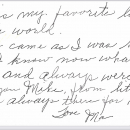 is my favorite
world.
came as I was
know now what
and always were
you Mike, from
always there for
Love Ma